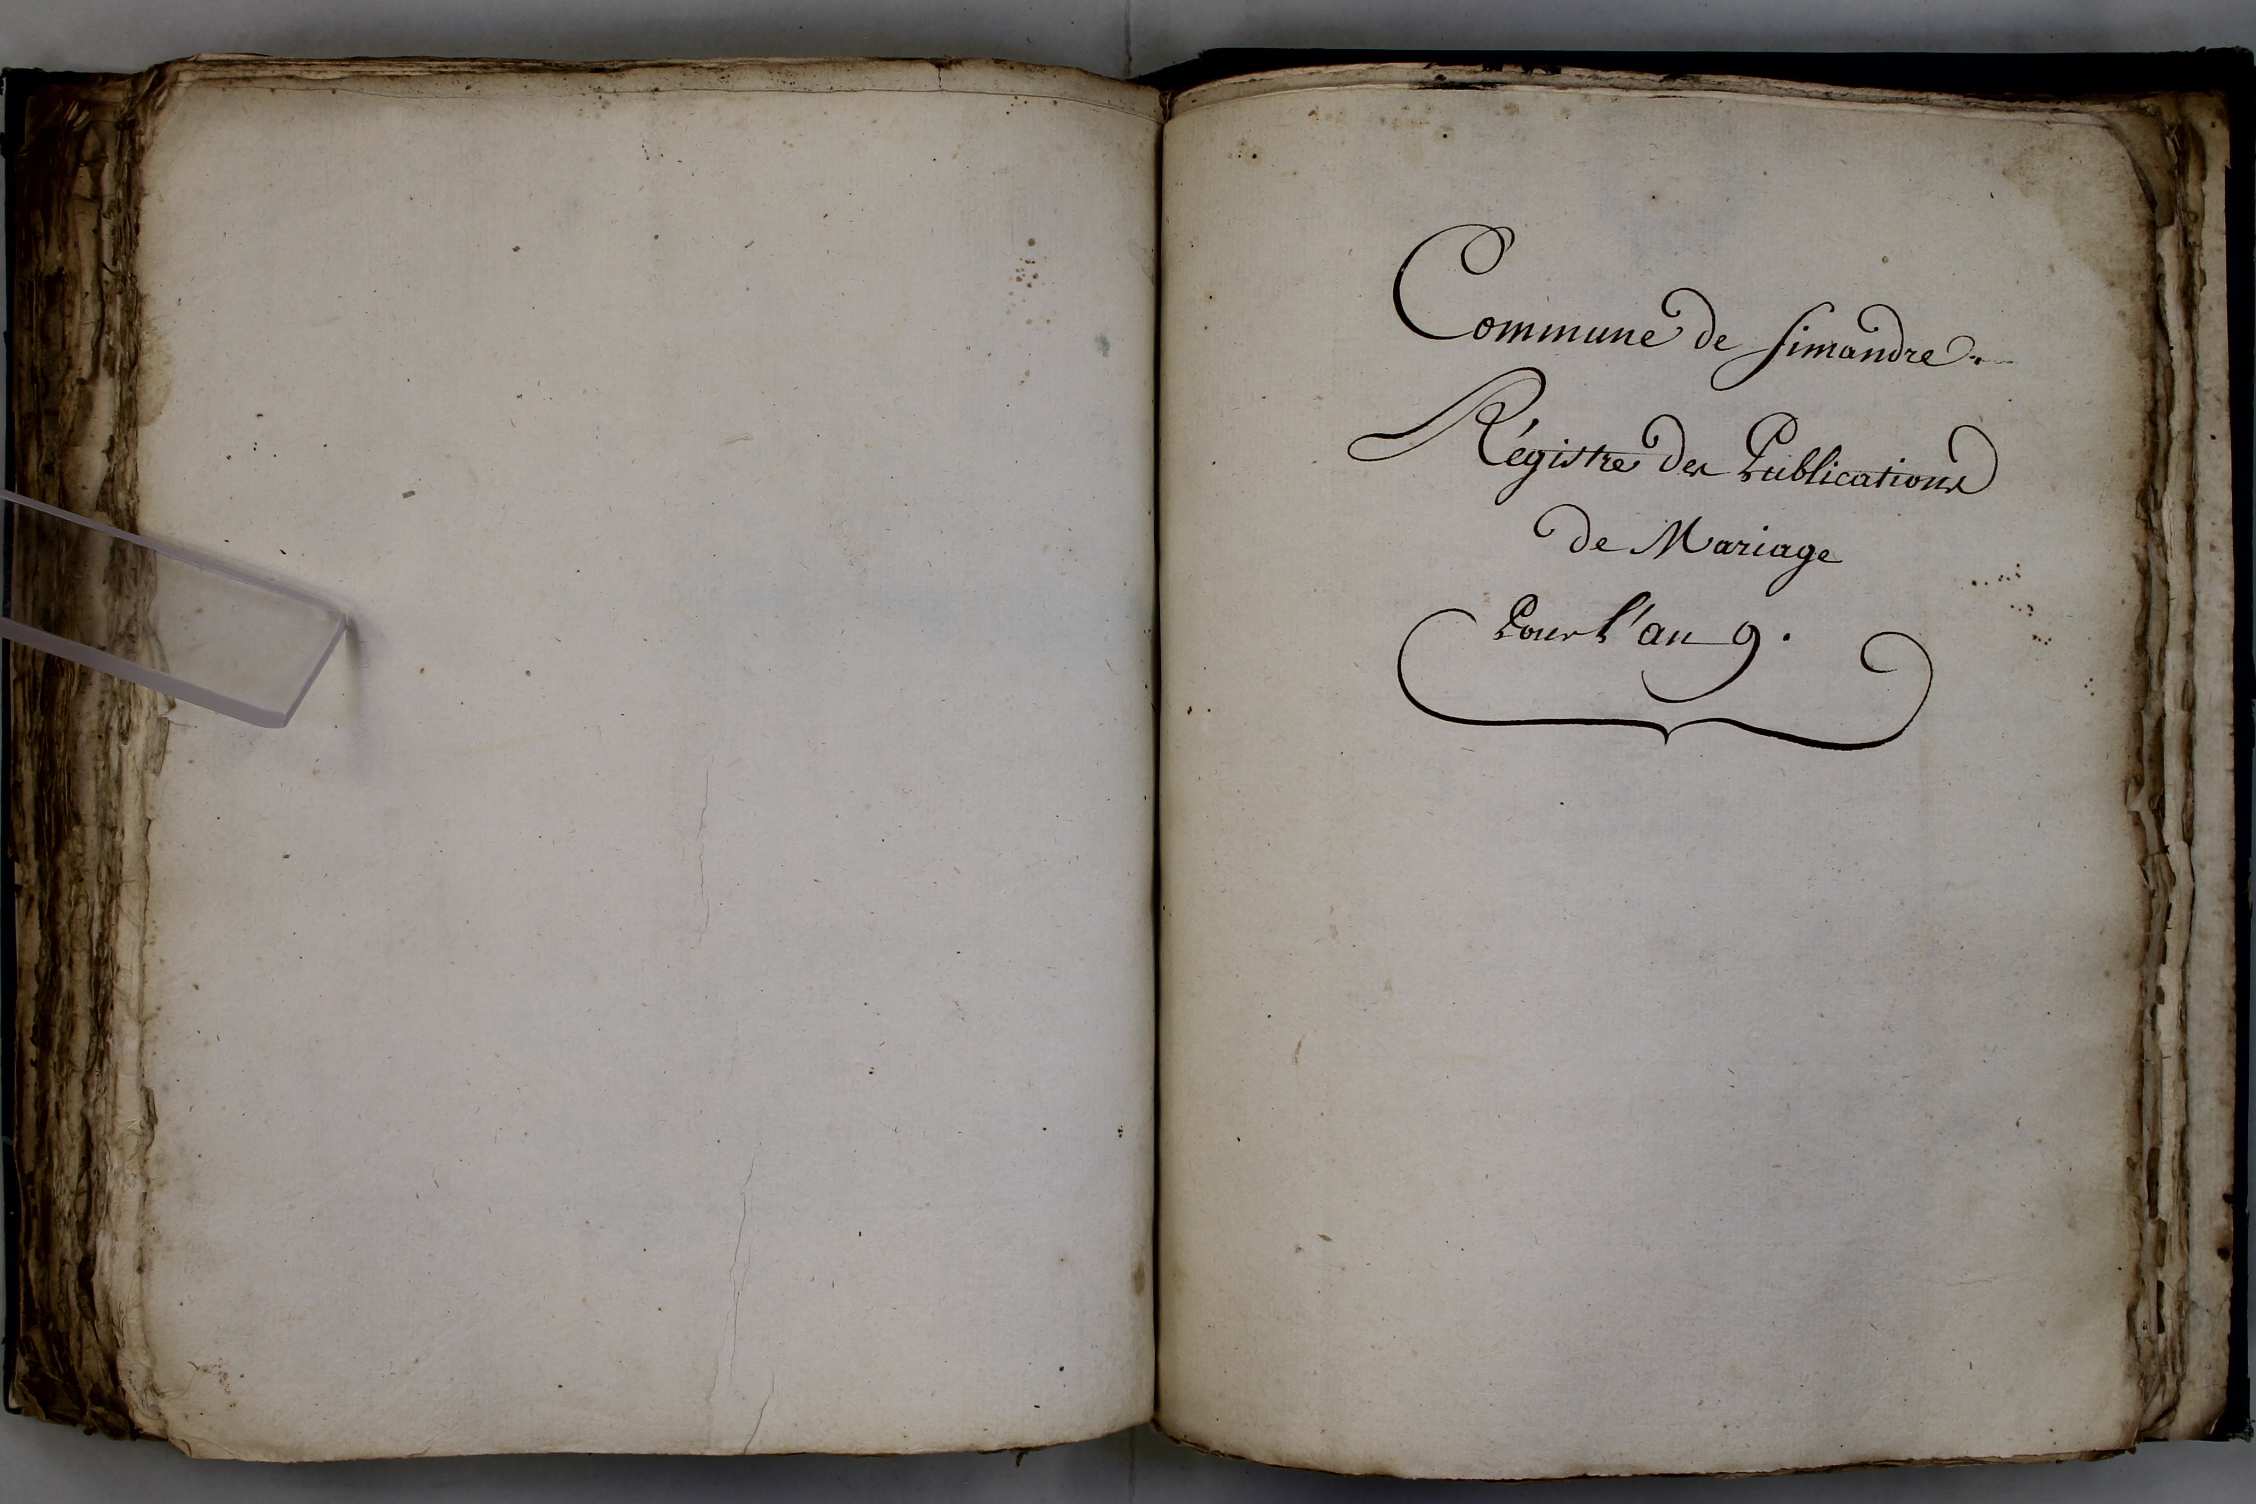 Commune de Simandre.
Régistre des Publications
de Mariage
Pour l'an 9.